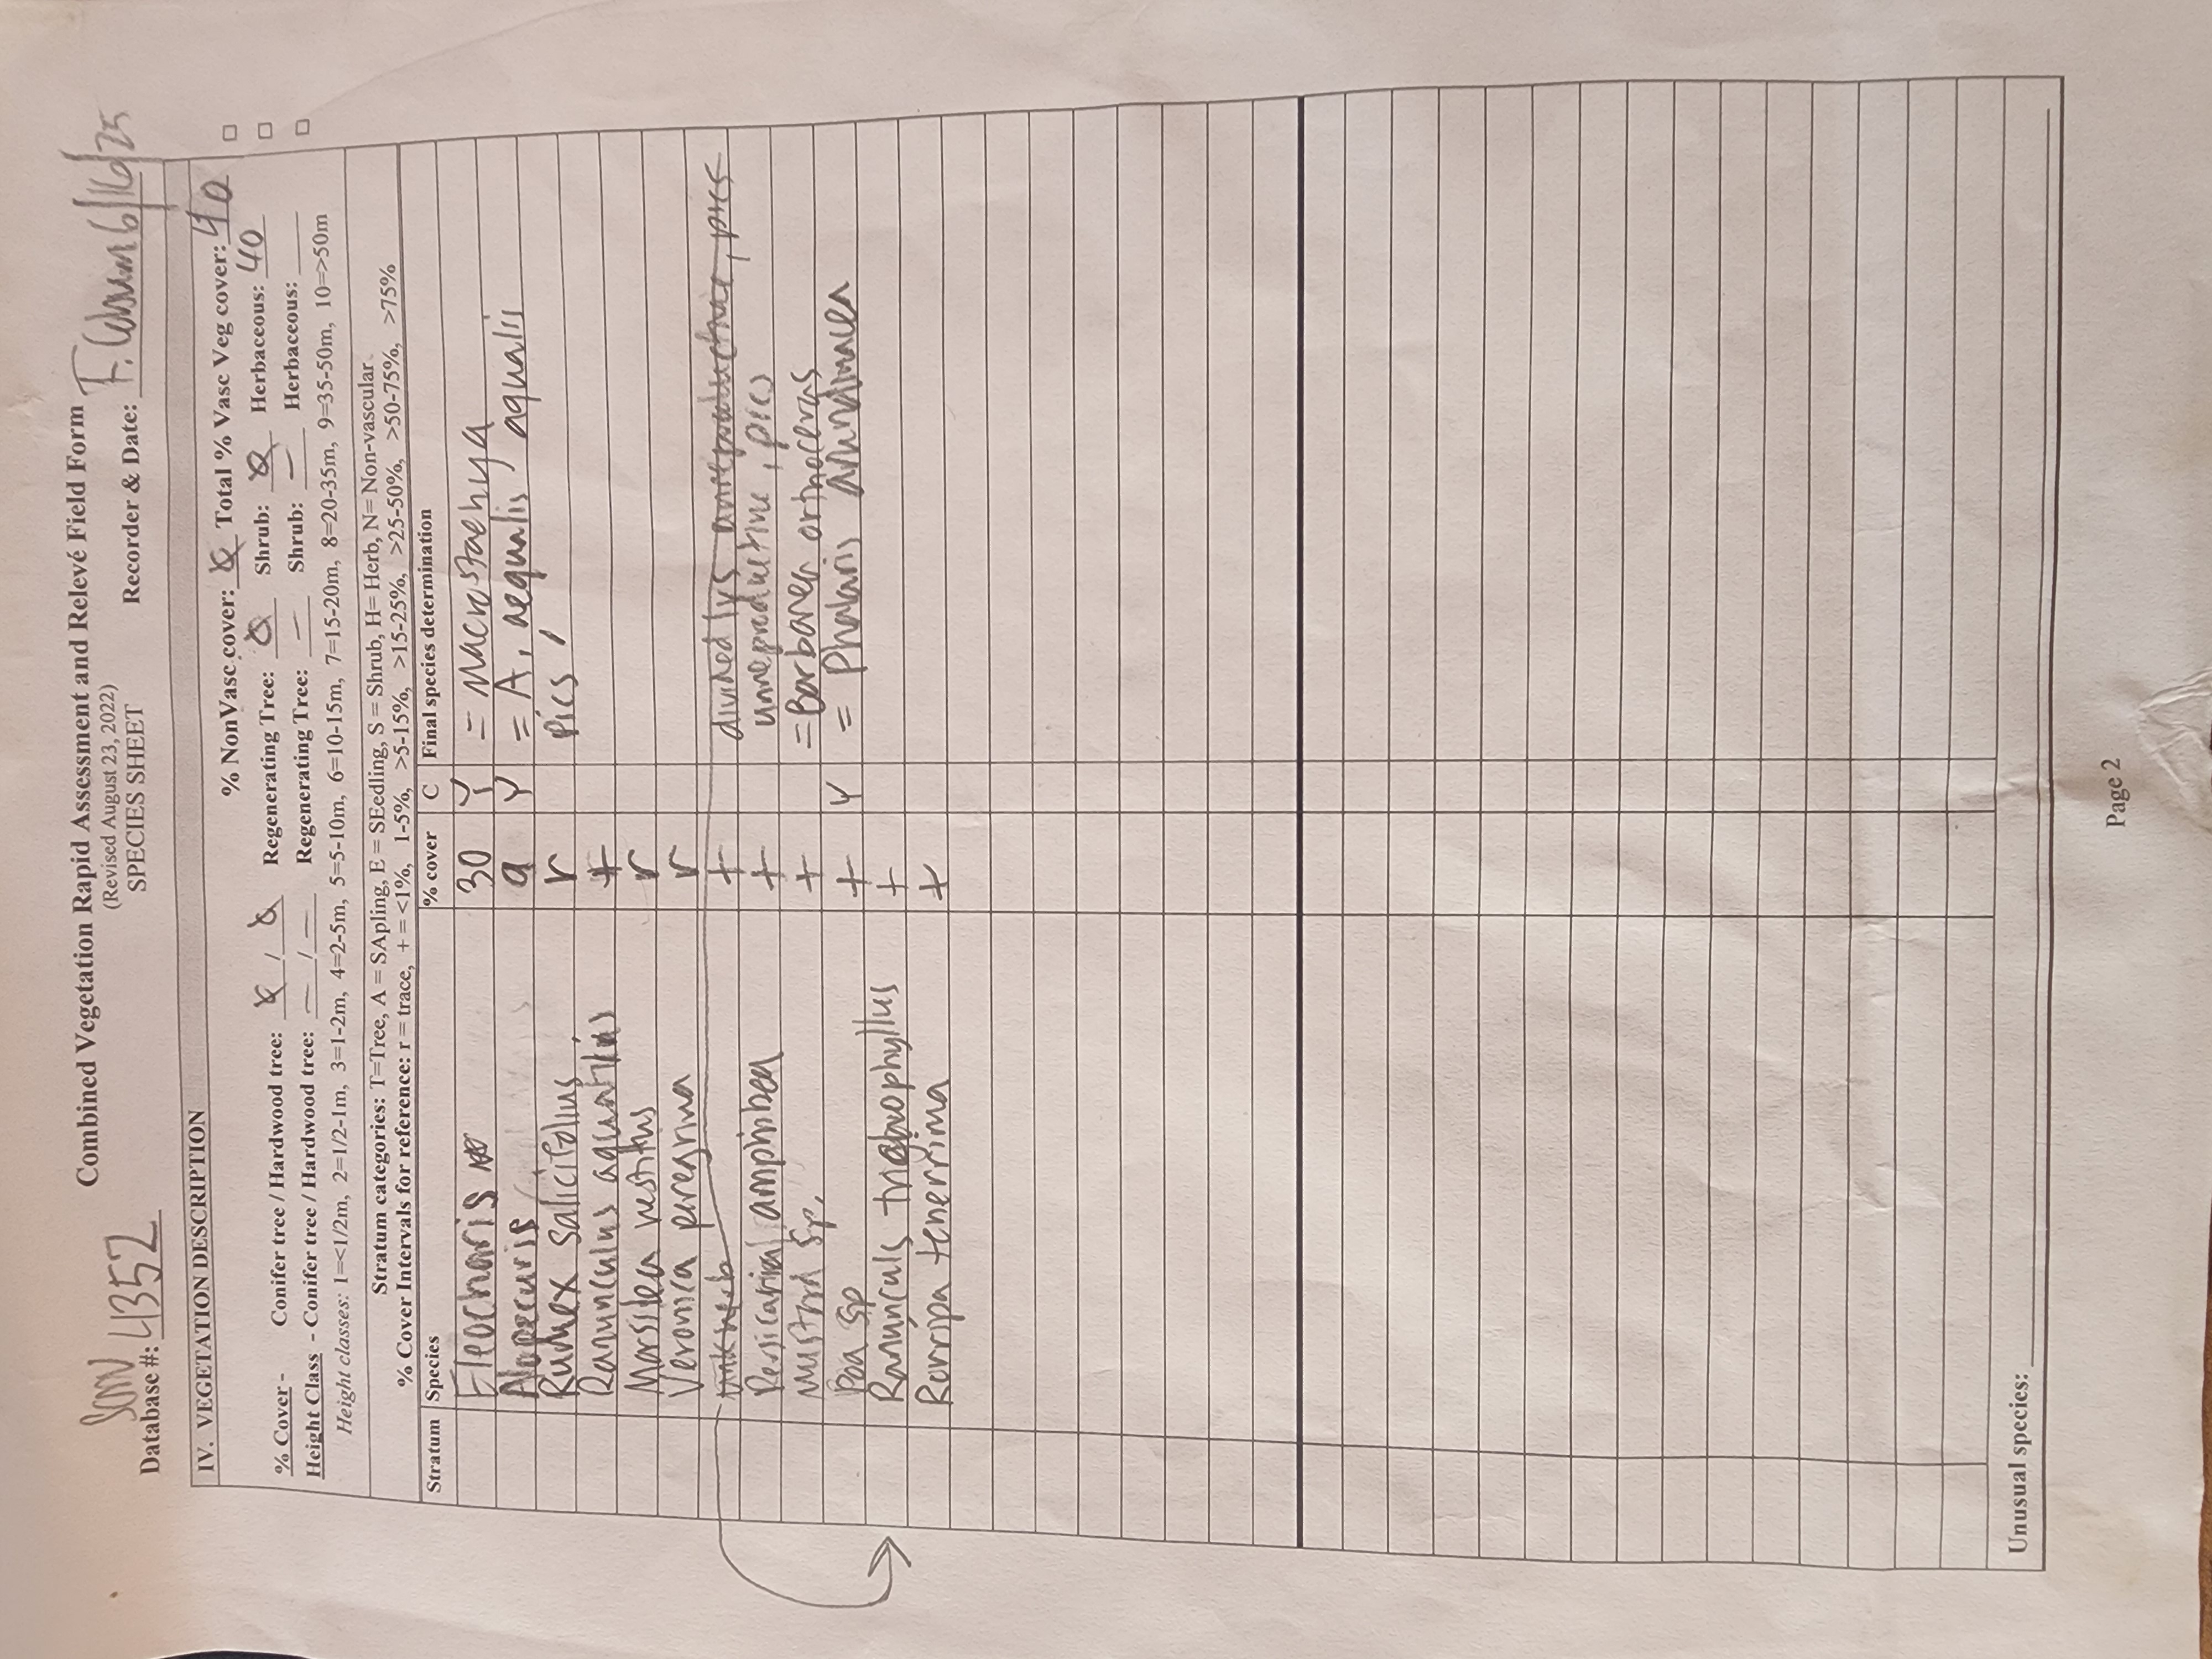 Combined Vegetation Rapid Assessment and Relevé Field Form
(Revised August 23, 2022)
SPECIES SHEET
Database #: 4352 Recorder & Date: F. 6/16/25
IV. VEGETATION DESCRIPTION
% NonVasc cover: 0 Total % Vasc Veg cover: 40
% Cover - Conifer tree / Hardwood tree: 0 / 0 Regenerating Tree: 0 Shrub: 0 Herbaceous: 40
Height Class - Conifer tree / Hardwood tree: — / — Regenerating Tree: — Shrub: — Herbaceous:
Height classes: 1=<1/2m, 2=1/2-1m, 3=1-2m, 4=2-5m, 5=5-10m, 6=10-15m, 7=15-20m, 8=20-35m, 9=35-50m, 10=>50m
Stratum categories: T=Tree, A = SApling, E = SEedling, S = Shrub, H= Herb, N= Non-vascular
% Cover Intervals for reference: r = trace, + = <1%, 1-5%, >5-15%, >15-25%, >25-50%, >50-75%, >75%
Stratum Species % cover C Final species determination
Eleocharis 30 Y = macrostachya
Alopecuris 9 Y = A. aequalis, aqualis
Rumex salicifolius r pics,
Ranunculus aquatilis +
Marsilea vestitus r
Veronica peregrina r
unk herb + divided lvs unreproductive, pics
Persicaria amphibea + unreproductive, pics
mustard sp. + = Barbarea orthoceras
Poa sp + Y = Phalaris arundinacea
Ranunculs trichophyllus +
Rorripa tenerrima +
Unusual species:
Page 2